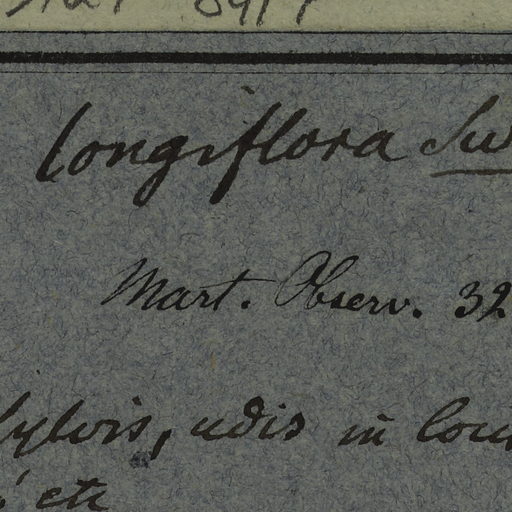 longiflora Sw
Mart. Observ. 32
Sylvis, udis in loci
etc